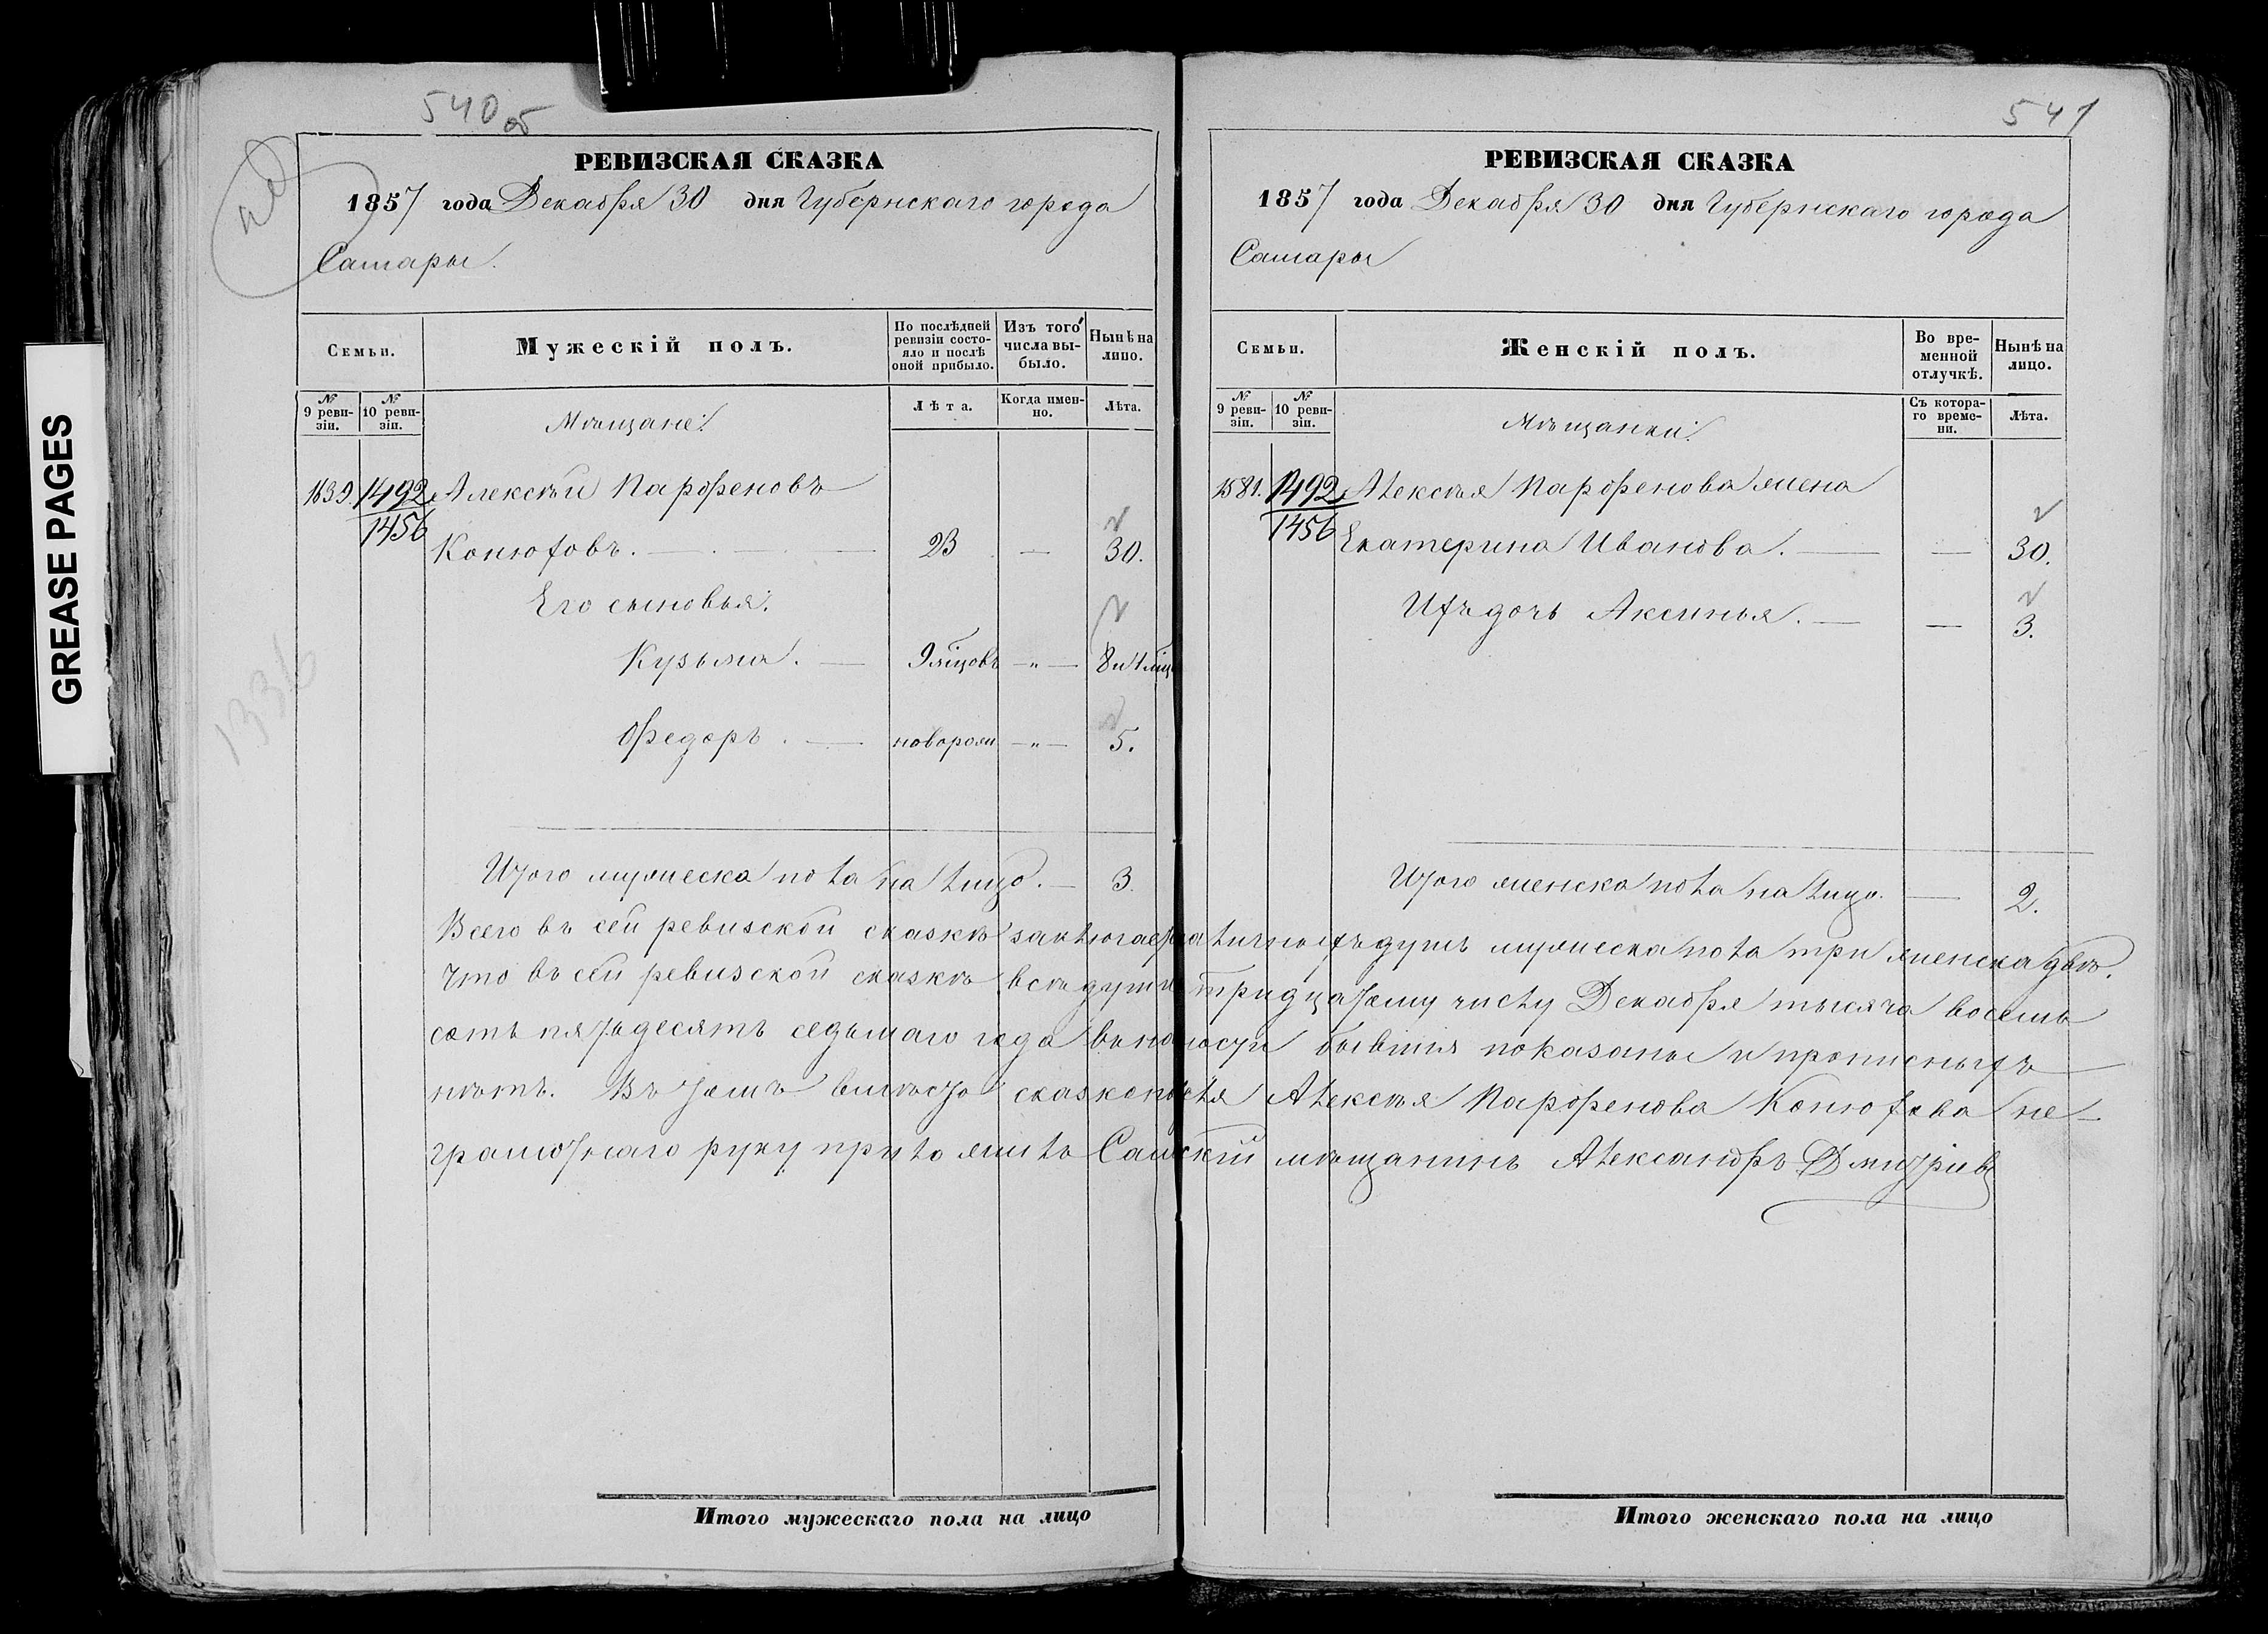 540 об
РЕВИЗСКАЯ СКАЗКА
1857 года Декабря 30 дня Губернскаго города
Самары.
Семьи.
Мужескій полъ.
По послѣдней ревизіи состояло и послѣ оной прибыло.
Изъ того числа выбыло.
Нынѣ на лицо.
№ 9 ревизіи.
№ 10 ревизіи.
Мѣщане:
Лѣта.
Когда именно.
Лѣта.
1639 1492 Алексѣй Парфеновъ
1456 Конюховъ. 23 — 30.
Его сыновья:
Кузьма. — 9 мѣсцовъ — „ — 8 и 4 мѣсц
Федоръ. — новорож — „ — 5.
Итого мужеска пола на лицо. — 3.
GREASE PAGES
1336
541
РЕВИЗСКАЯ СКАЗКА
1857 года Декабря 30 дня Губернскаго города
Самары
Семьи.
Женскій полъ.
Во временной отлучкѣ.
Нынѣ на лицо.
№ 9 ревизіи.
№ 10 ревизіи.
Мѣщанки:
Съ котораго времени.
Лѣта.
1581. 1492 Алексѣя Парфенова жена
1456 Екатерина Иванова. — — 30.
Ихъ дочь Аксинья. — — 3.
Итого женска пола на лицо. — 2.
Всего въ сей ревизской сказкѣ заключается личныхъ душъ мужеска пола три женска двѣ.
Что въ сей ревизской сказкѣ всѣ души тридцатому числу Декабря тысяча восемь
сотъ пятьдесятъ седьмаго года въ налости бывшія показаны и прописныхъ
нѣтъ. Въ томъ вмѣсто сказкоподателя Алексѣя Парфенова Конюхова не-
грамотнаго руку приложилъ Самскій мѣщанинъ Александръ Дмитріев
Итого мужескаго пола на лицо
Итого женскаго пола на лицо